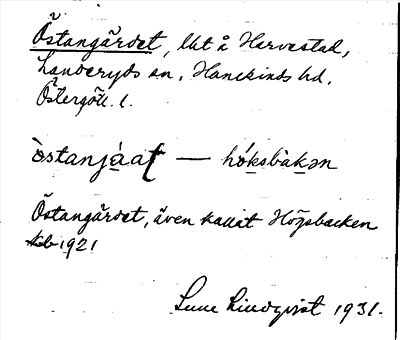 Östangärdet, lht å Harvestad,
Landeryds sn, Hanekinds hd,
Östergötl. l.
òstanjáat — hóksbàkən
Östangärdet, även kallat Högsbacken
1921
Sune Lindqvist 1931.